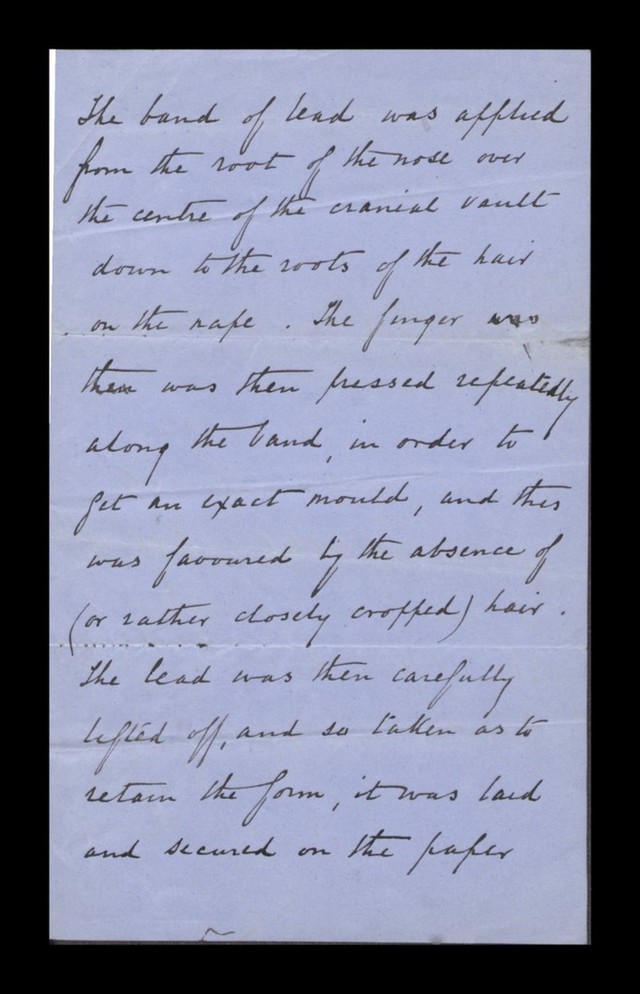 The band of lead was applied
from the root of the nose over
the centre of the cranial vault
down to the roots of the hair
on the nape . The finger was
then was then pressed repeatedly
along the band, in order to
get an exact mould, and this
was favoured by the absence of
(or rather closely cropped) hair .
The lead was then carefully
lifted off, and so taken as to
retain the form, it was laid
and secured on the paper